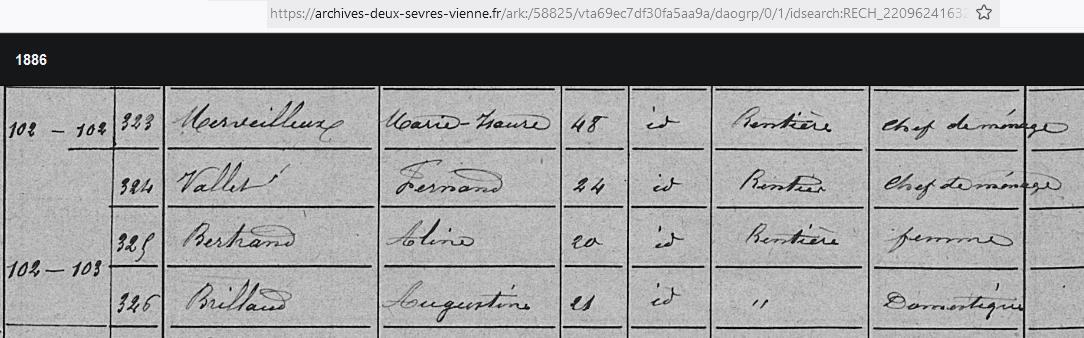 https://archives-deux-sevres-vienne.fr/ark:/58825/vta69ec7df30fa5aa9a/daogrp/0/1/idsearch:RECH_22096241632
1886
102 - 102 323 Merveilleux Marie-Isaure 48 id Rentière chef de ménage
324 Vallet Fernand 24 id Rentier chef de ménage
325 Bertrand Aline 20 id Rentière femme
102 - 103
326 Brillaud Augustine 21 id " Domestique